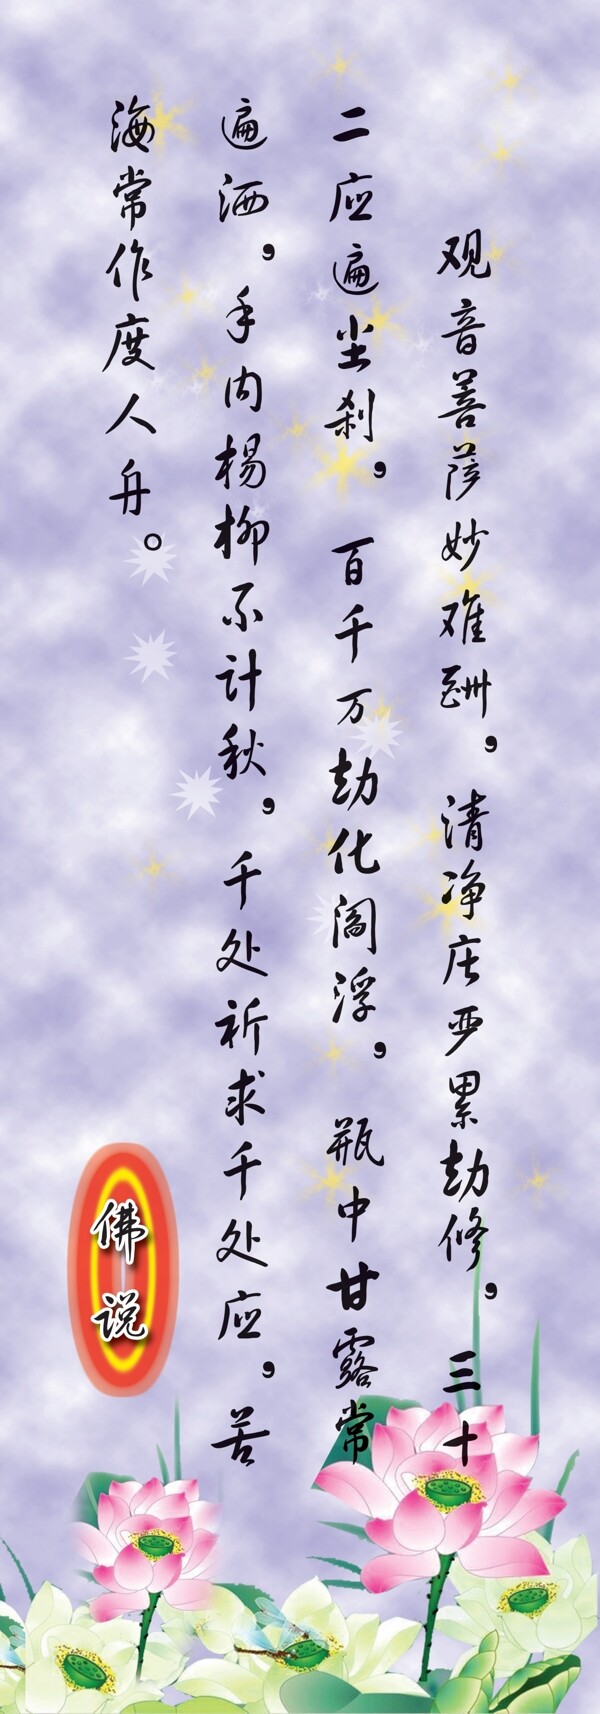 观音菩萨妙难酬，清净庄严累劫修，三十
二应遍尘刹，百千万劫化阎浮，瓶中甘露常
遍洒，手内杨柳不计秋，千处祈求千处应，苦
海常作度人舟。
佛说